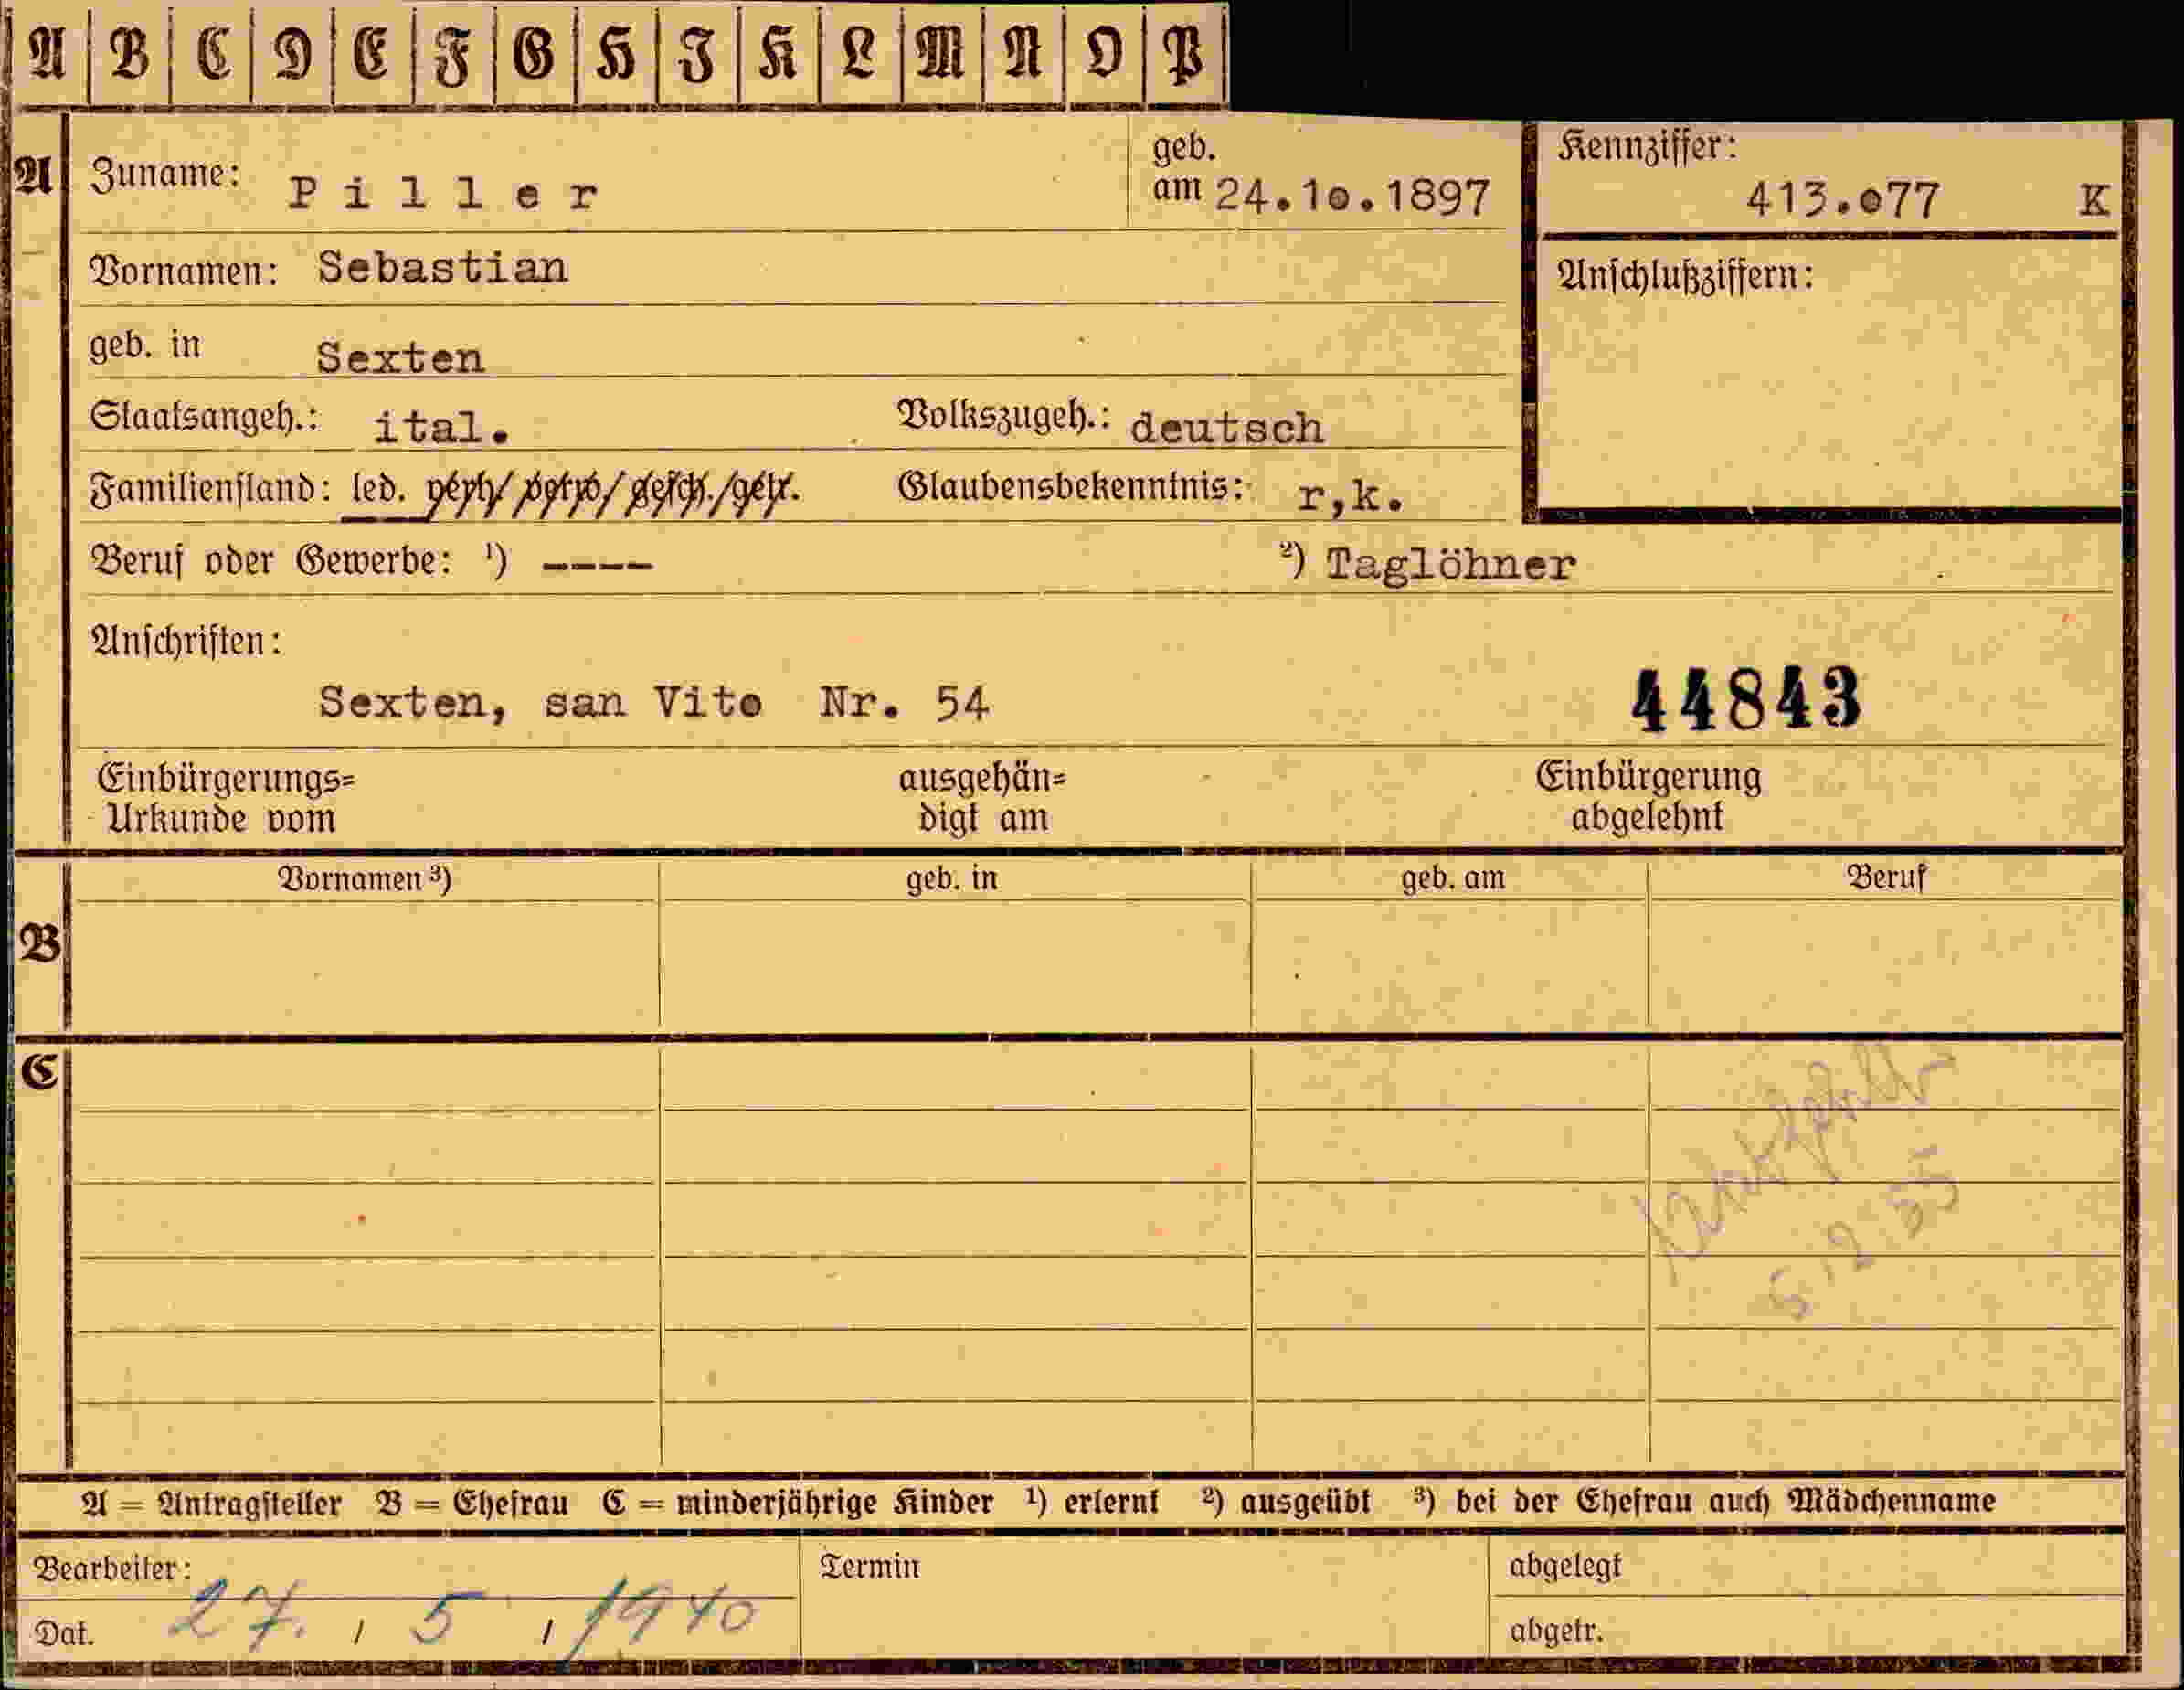 A B C D E F G H I K L M N O P
A
Zuname: Piller
geb. am 24.1o.1897
Kennziffer: 413.o77 K
Vornamen: Sebastian
Anschlußziffern:
geb. in Sexten
Staatsangeh.: ital. Volkszugeh.: deutsch
Familienstand: led. verh/ verw/ gesch./getr. Glaubensbekenntnis: r,k.
Beruf oder Gewerbe: ¹) ---- ²) Taglöhner
Anschriften:
Sexten, san Vito Nr. 54
44843
Einbürgerungs=
Urkunde vom
ausgehän=
digt am
Einbürgerung
abgelehnt
Vornamen ³) geb. in geb. am Beruf
B
C
5.12.55
A = Antragsteller B = Ehefrau C = minderjährige Kinder ¹) erlernt ²) ausgeübt ³) bei der Ehefrau auch Mädchenname
Bearbeiter: Termin abgelegt
Dat. 27. / 5 / 1940 abgetr.